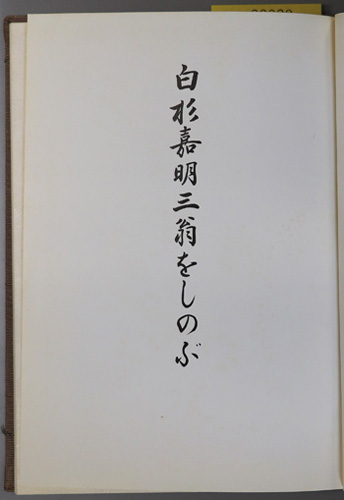 白杉嘉明三翁をしのぶ